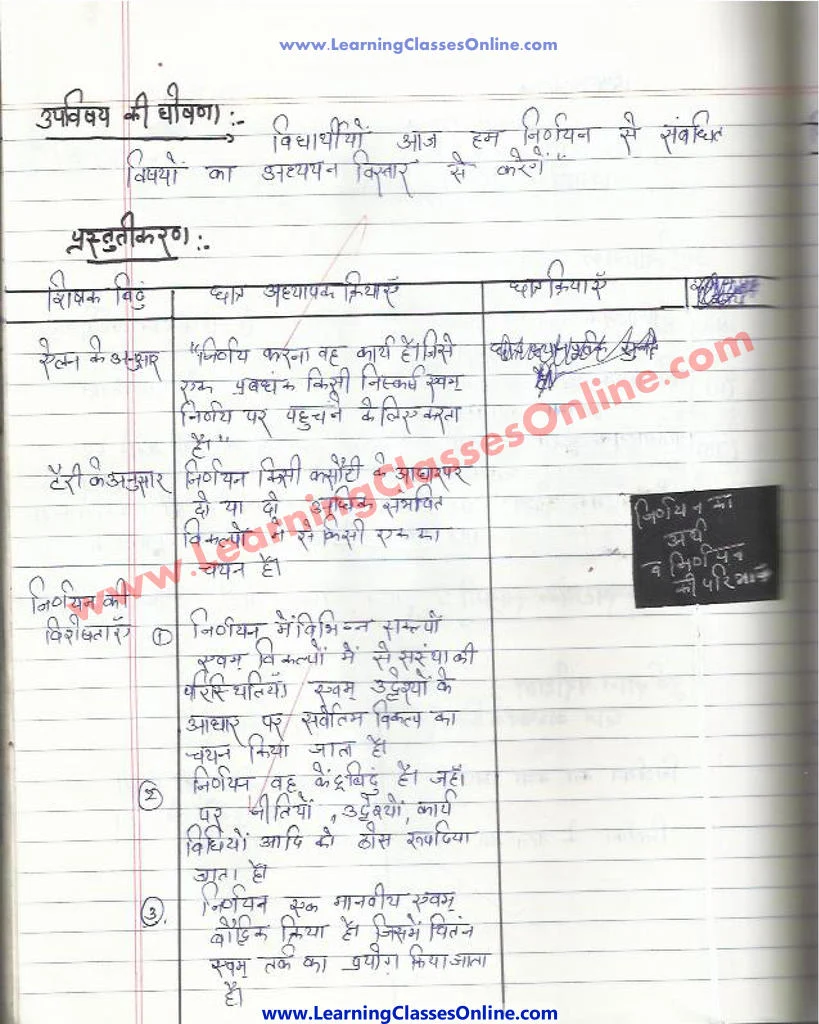 www.LearningClassesOnline.com
उपविषय की घोषणा :-
विधार्थीयों आज हम निर्णयन से संबधित
विषयों का अध्ययन विस्तार से करेगें"
प्रस्तुतीकरण :-
शिक्षक बिदुं छात्र अध्यापक क्रियाएँ छात्र क्रियाएँ
ऐलन के अनुसार "निर्णय करना वह कार्य है। जिसे
एक प्रबधंक किसी निस्कर्ष एवम्
निर्णय पर पहुचने के लिए करता
है।"
टैरी के अनुसार निर्णयन किसी कसौटी के आधार पर
दो या दो अधिक सभंवित
विकल्पों में से किसी एक का
चयन है।
निर्णयन का
अर्थ
व निर्णयन
की परिभाषा
निर्णयन की
विशेषताएँ
① निर्णयन में विभिन्न सकल्पों
एवम् विकल्पों में से सस्ंथा की
परिस्थितियों एवम् उद्देश्यों के
आधार पर सर्वोतम विकल्प का
चयन किया जाता है।
② निर्णयन वह केंद्रबिदुं है। जहाँ
पर नीतियों, उद्देश्यों, कार्य
विधियों आदि को ठोस रूप दिया
जाता है।
③. निर्णयन एक मानवीय एवम्
बौद्विक क्रिया है। जिसमें चितंन
एवम् तर्क का प्रयोग किया जाता
है।
www.LearningClassesOnline.com
www.LearningClassesOnline.com